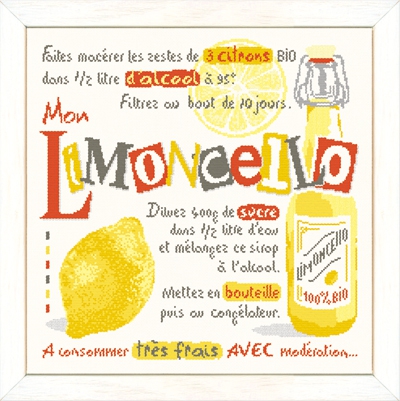 Faites macérer les zestes de 3 citrons BIO
dans 1/2 litre d'alcool à 95°
Filtrez au bout de 10 jours.
Mon
LIMONCELLO
Diluez 400g de sucre
dans 1/2 litre d'eau
et mélangez ce sirop
à l'alcool.
LIMONCELLO
100% BIO
Mettez en bouteille
puis au congélateur.
A consommer très frais AVEC modération...